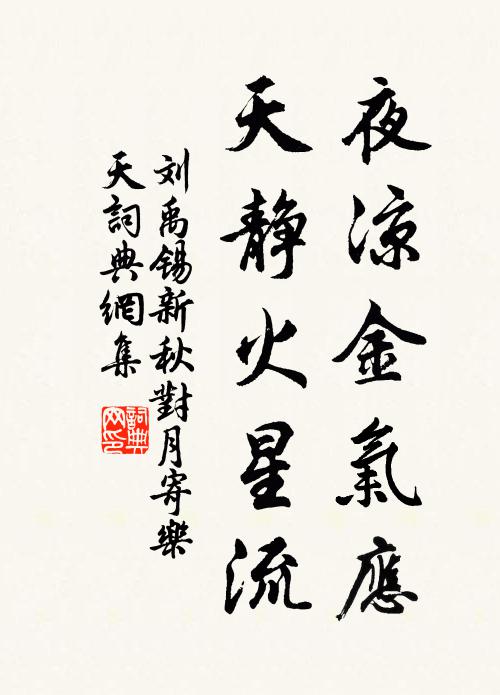 夜涼金氣應
天靜火星流
刘禹锡新秋對月寄樂
天詞典網集
詞典
网印